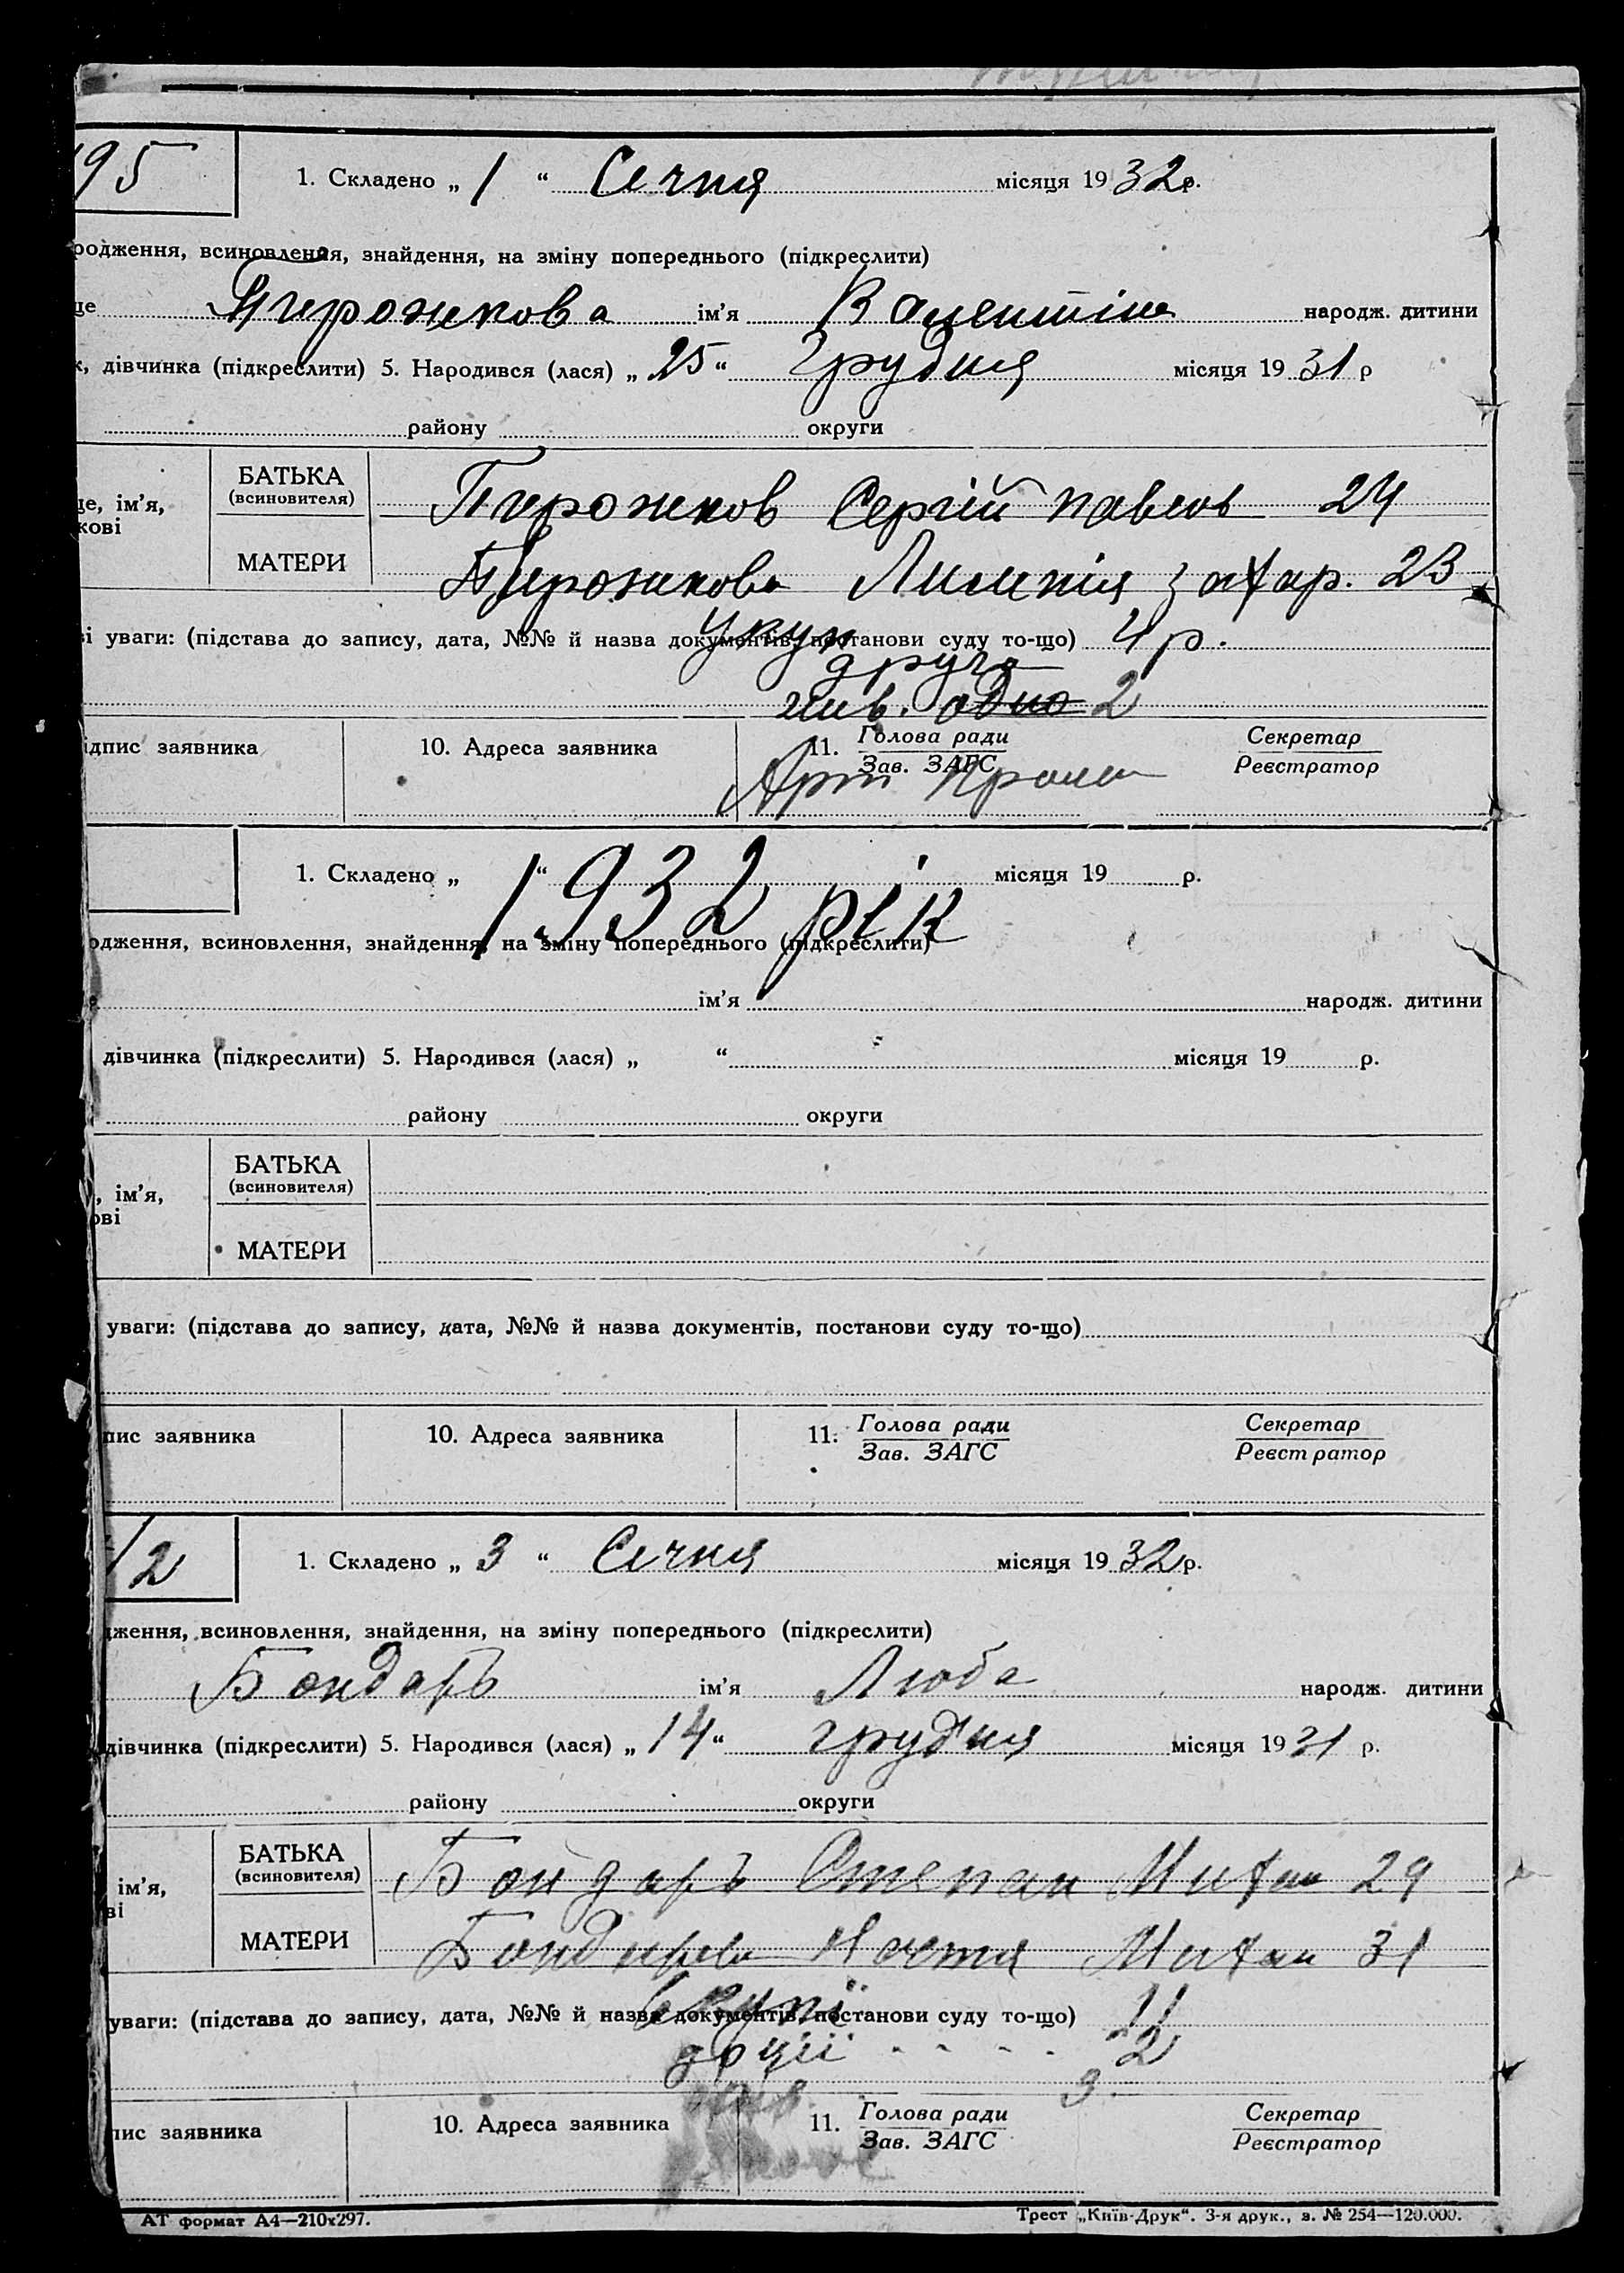 95
1. Складено „ 1 “ Січня місяця 1932 р.
родження, всиновлення, знайдення, на зміну попереднього (підкреслити)
це Пирожкова ім’я Валентіна народж. дитини
к, дівчинка (підкреслити) 5. Народився (лася) „ 25 “ Грудня місяця 19 31 р
району округи
це, ім’я, кові
БАТЬКА (всиновителя) Пирожков Сергій Павлов 24
МАТЕРИ Пирожкова Захар. 23
і уваги: (підстава до запису, дата, №№ й назва документів, постанови суду то-що) 4 р.
друга
жив. одно 2
ідпис заявника 10. Адреса заявника 11. Голова ради Секретар
Зав. ЗАГС Реєстратор
Арт
1. Складено „ “ місяця 19 р.
1932 рік
одження, всиновлення, знайдення, на зміну попереднього (підкреслити)
е ім’я народж. дитини
дівчинка (підкреслити) 5. Народився (лася) „ “ місяця 19 р.
району округи
, ім’я, ові
БАТЬКА (всиновителя)
МАТЕРИ
уваги: (підстава до запису, дата, №№ й назва документів, постанови суду то-що)
пис заявника 10. Адреса заявника 11. Голова ради Секретар
Зав. ЗАГС Реєстратор
2
1. Складено „ 3 “ Січня місяця 19 32 р.
дження, всиновлення, знайдення, на зміну попереднього (підкреслити)
Бондарь ім’я Люба народж. дитини
дівчинка (підкреслити) 5. Народився (лася) „ 14 “ грудня місяця 19 31 р.
району округи
ім’я, ві
БАТЬКА (всиновителя) Бондарь Степан Михай 29
МАТЕРИ Бондарева Настя Михай 31
уваги: (підстава до запису, дата, №№ й назва документів, постанови суду то-що) 11
2
3
пис заявника 10. Адреса заявника 11. Голова ради Секретар
Зав. ЗАГС Реєстратор
АТ формат А4—210х297. Трест „Київ-Друк“. 3-я друк., з. № 254—120.000.